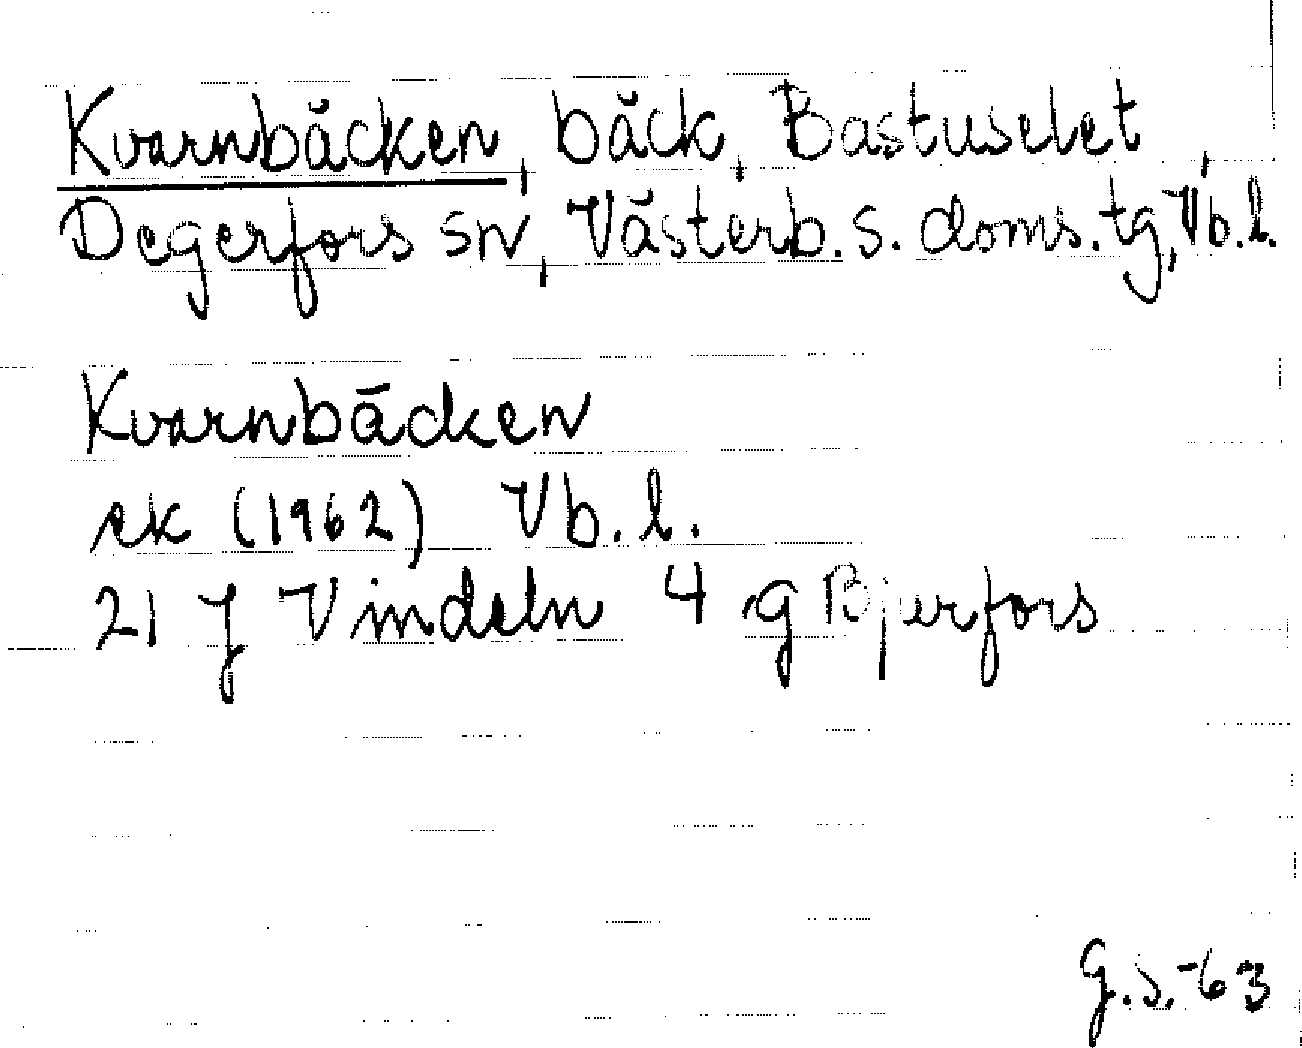 Kvarnbäcken, bäck, Bastuselet,
Degerfors sn, Västerb. s. doms. tg, Vb. l.
Kvarnbäcken
ek (1962) Vb. l.
21 J Vindeln 4 g Bjurfors
G.S.-63